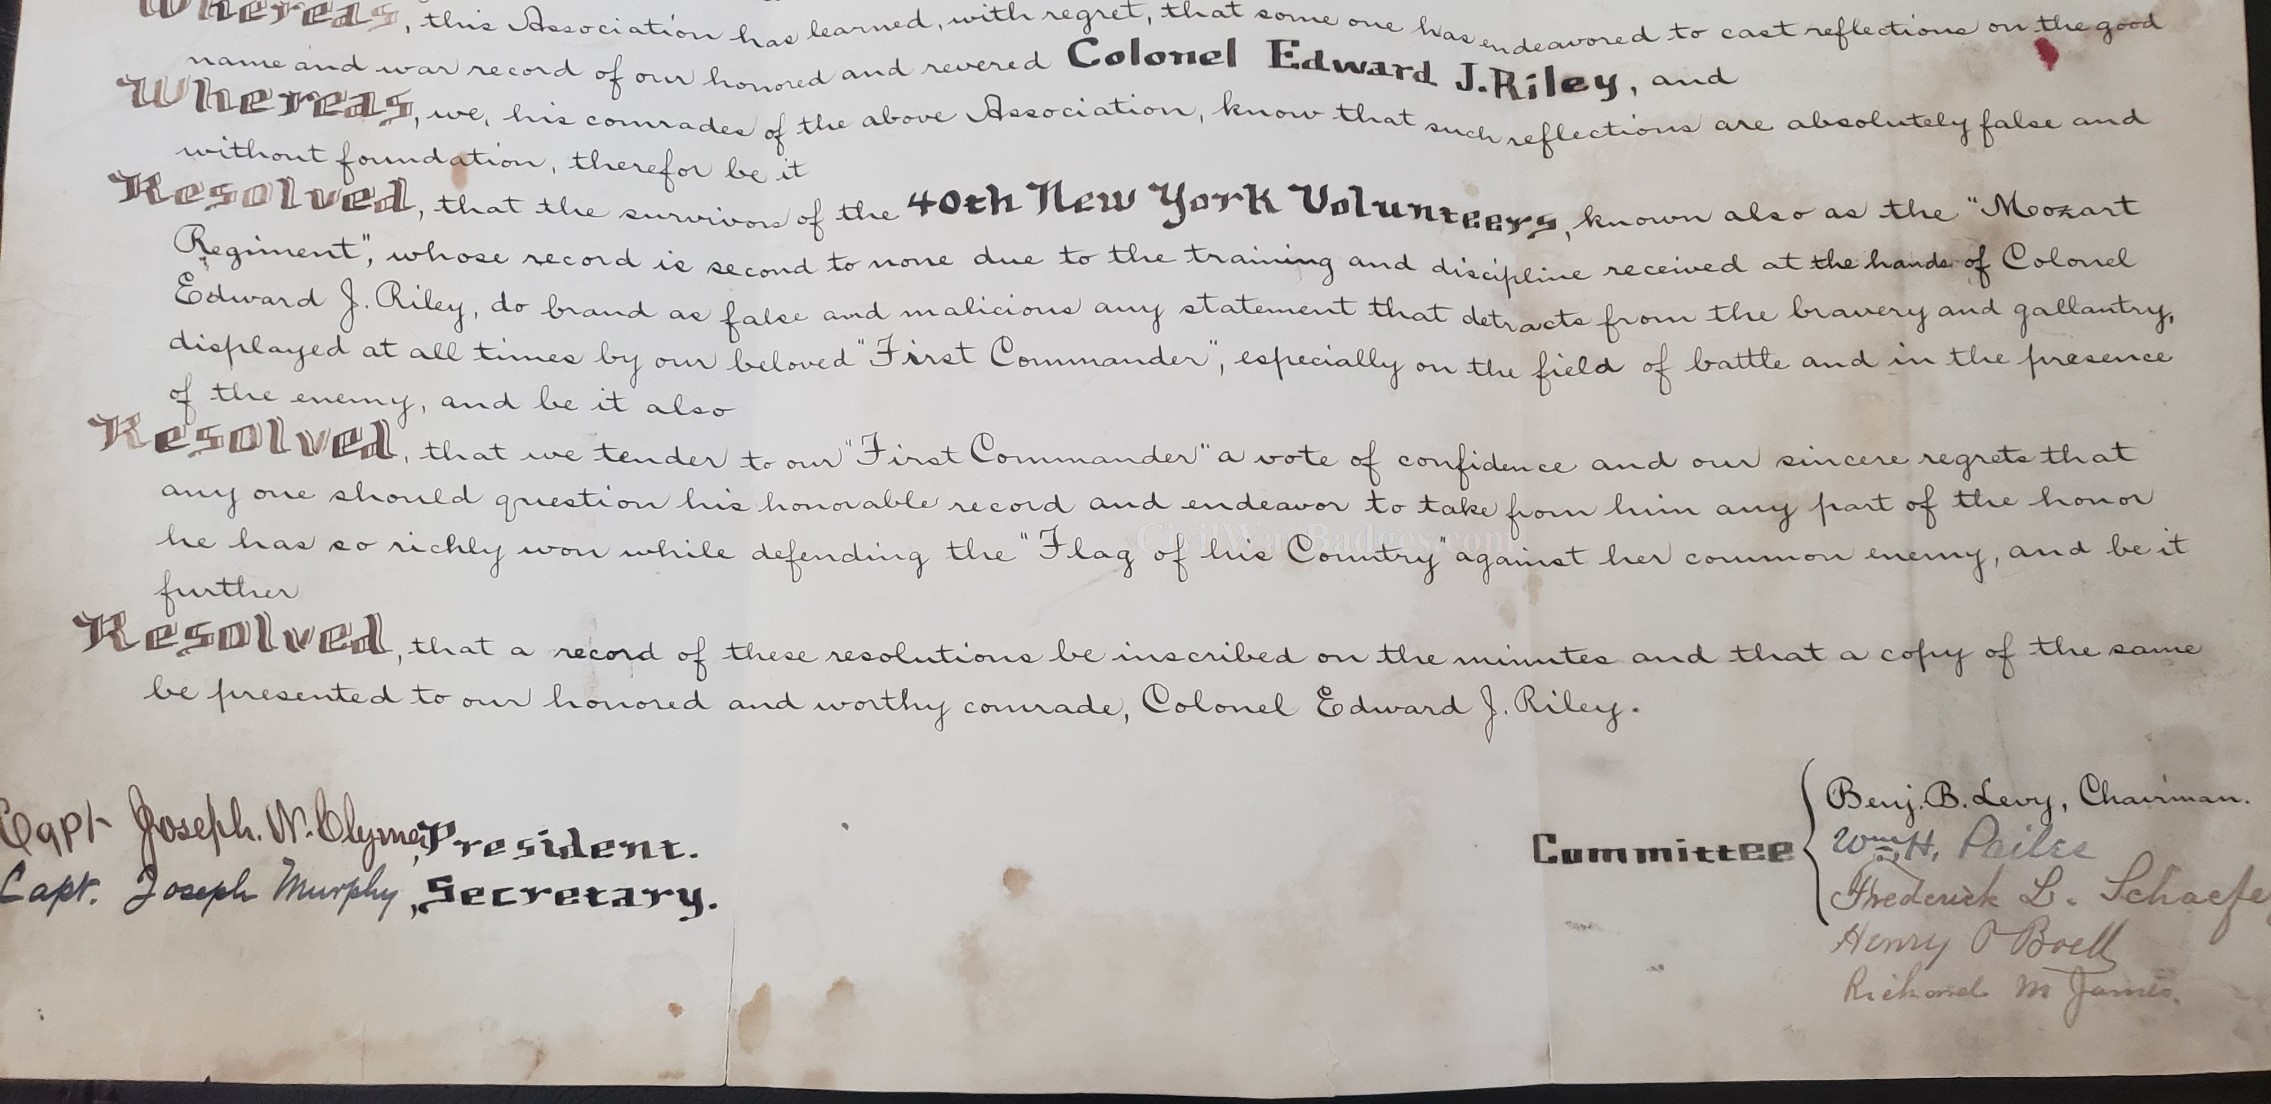 Whereas, this Association has learned, with regret, that some one has endeavored to cast reflections on the good
name and war record of our honored and revered Colonel Edward J. Riley, and
Whereas, we, his comrades of the above Association, know that such reflections are absolutely false and
without foundation, therefor be it
Resolved, that the survivors of the 40th New York Volunteers, known also as the "Mozart
Regiment", whose record is second to none due to the training and discipline received at the hands of Colonel
Edward J. Riley, do brand as false and malicious any statement that detracts from the bravery and gallantry,
displayed at all times by our beloved "First Commander", especially on the field of battle and in the presence
of the enemy, and be it also
Resolved, that we tender to our "First Commander" a vote of confidence and our sincere regrets that
any one should question his honorable record and endeavor to take from him any part of the honor
he has so richly won while defending the "Flag of his Country" against her common enemy, and be it
further
Resolved, that a record of these resolutions be inscribed on the minutes and that a copy of the same
be presented to our honored and worthy comrade, Colonel Edward J. Riley.
Capt Joseph. W. Clymer, President.
Capt. Joseph Murphy, Secretary.
Committee
Benj. B. Levy, Chairman.
Wm H.
Frederick L. Schaefe
Henry O Boell
Richard M James.
CivilWarBadges.com